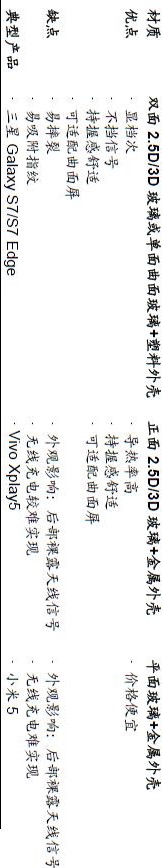 材质 双面 2.5D/3D 玻璃或单面曲面玻璃+塑料外壳 正面 2.5D/3D 玻璃+金属外壳 平面玻璃+金属外壳
优点 · 显档次 · 导热率高 · 价格便宜
· 不挡信号 · 持握感舒适
· 持握感舒适 · 可适配曲面屏
· 可适配曲面屏
缺点 · 易摔裂 · 外观影响：后部裸露天线信号 · 外观影响：后部裸露天线信号
· 易吸附指纹 · 无线充电较难实现 · 无线充电难实现
典型产品 · 三星 Galaxy S7/S7 Edge · Vivo Xplay5 · 小米 5